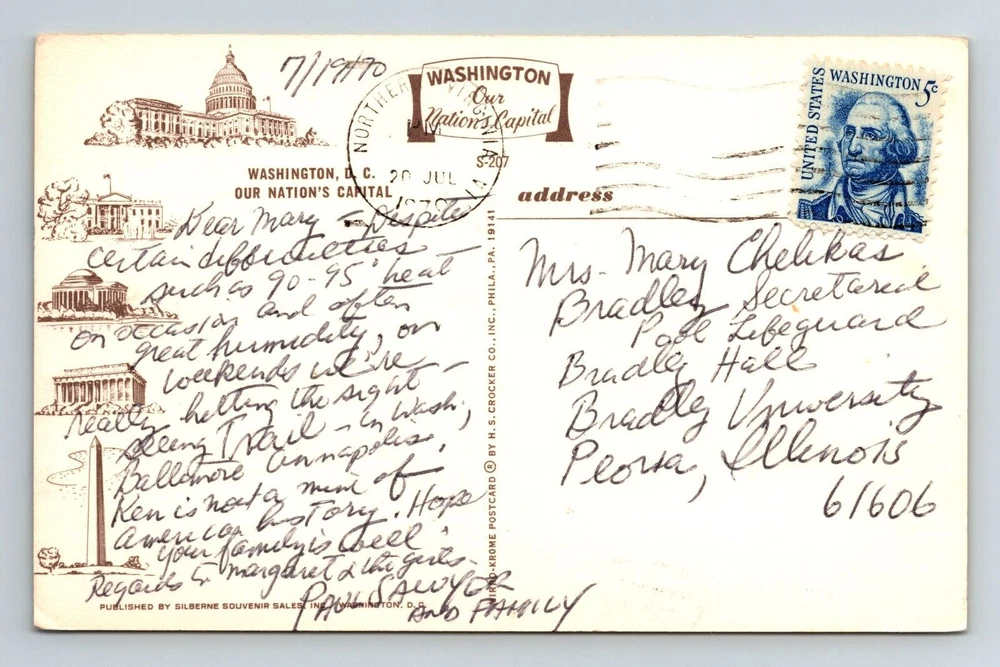 7/19/70
WASHINGTON
Our
Nation's Capital
S-207
WASHINGTON, D. C.
OUR NATION'S CAPITAL
NORTHERN VIRGINIA
PM
20 JUL
1970
VA
UNITED STATES
WASHINGTON 5c
address
Dear Mary – Despite
certain difficulties
such as 90-95° heat
on occasion and often
great humidity, on
weekends we're
really hitting the sight-
seeing Trail – in Wash,
Baltimore Annapolis.
Ken is not a mine of
American history. Hope
your family is well
Regards to Margaret & the girls-
PAUL SAWYER
AND FAMILY
Mrs. Mary Chelikas
Bradley Secretarial
Pool Lifeguard
Bradley Hall
Bradley University
Peoria, Illinois
61606
MIRRO-KROME POSTCARD ® BY H. S. CROCKER CO., INC., PHILA., PA. 19141
PUBLISHED BY SILBERNE SOUVENIR SALES, INC., WASHINGTON, D. C.